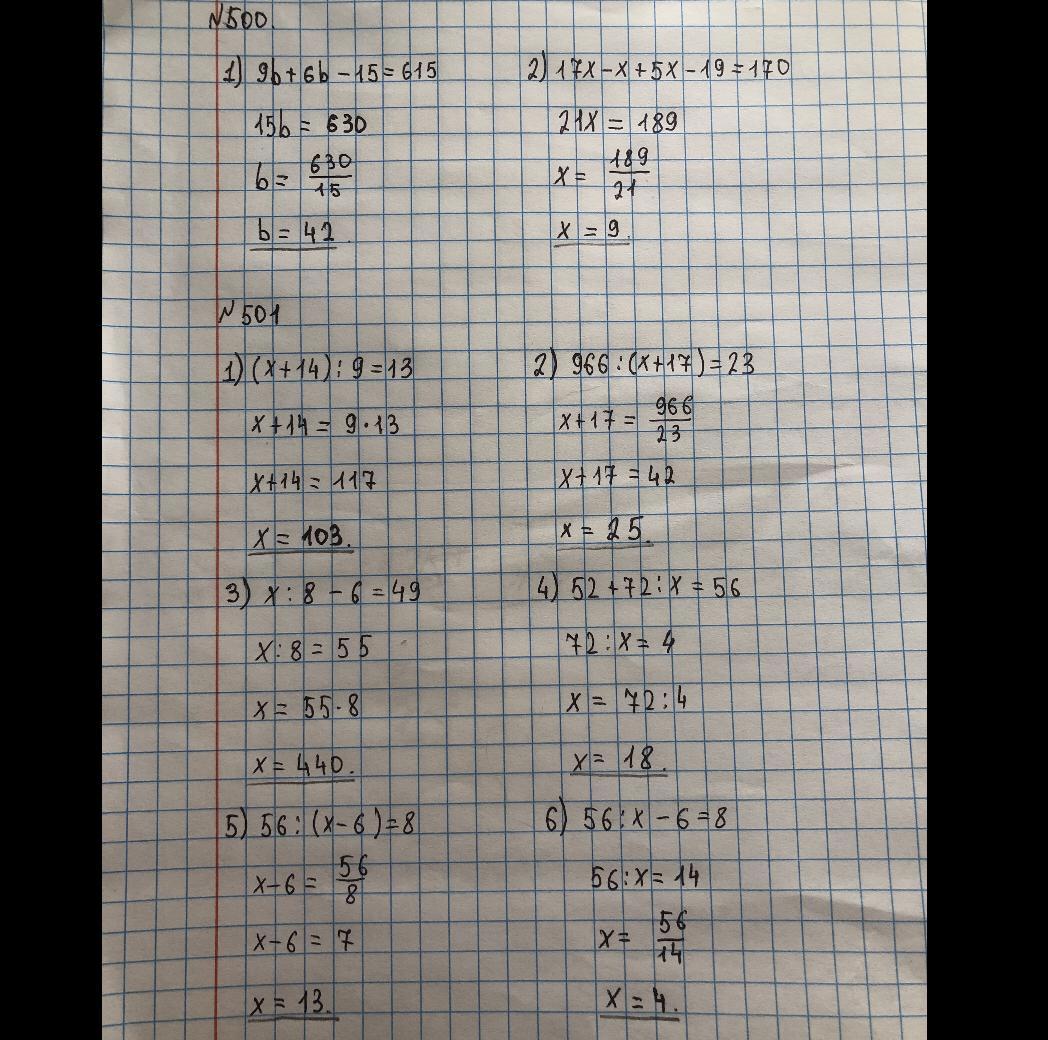 №500.
1) 9b+6b-15=615
15b = 630
b = 630/15
b = 42.
2) 17x-x+5x-19=170
21x = 189
x = 189/21
x = 9.
№501
1) (x+14):9=13
x+14 = 9·13
x+14 = 117
x = 103.
2) 966:(x+17)=23
x+17 = 966/23
x+17 = 42
x = 25.
3) x:8-6=49
x:8=55
x = 55·8
x = 440.
4) 52+72:x=56
72:x=4
x = 72:4
x = 18.
5) 56:(x-6)=8
x-6 = 56/8
x-6 = 7
x = 13.
6) 56:x-6=8
56:x=14
x = 56/14
x = 4.